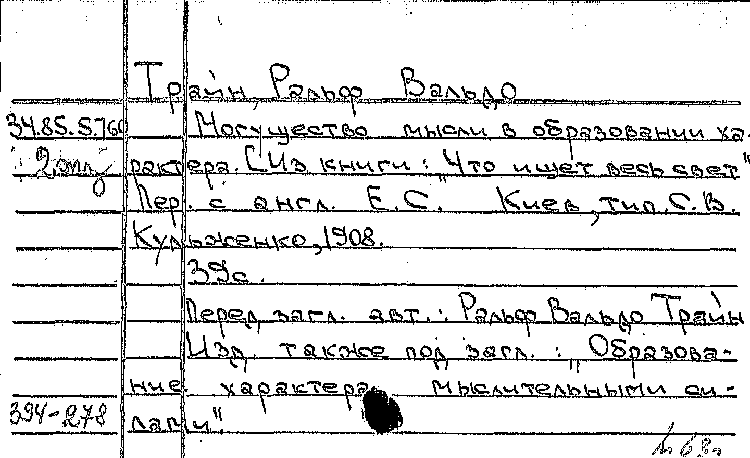 Трайн, Ральф Вальдо
34.85.5.760 Могущество мысли в образовании ха-
2 экз рактера. [Из книги: "Что ищет весь свет"
Пер. с англ. Е.С. Киев, тип. С.В.
Кульженко, 1908.
39с.
Перед загл. авт.: Ральф Вальдо Трайн
Изд. также под загл.: "Образова-
ние характера мыслительными си-
394-278 лами".